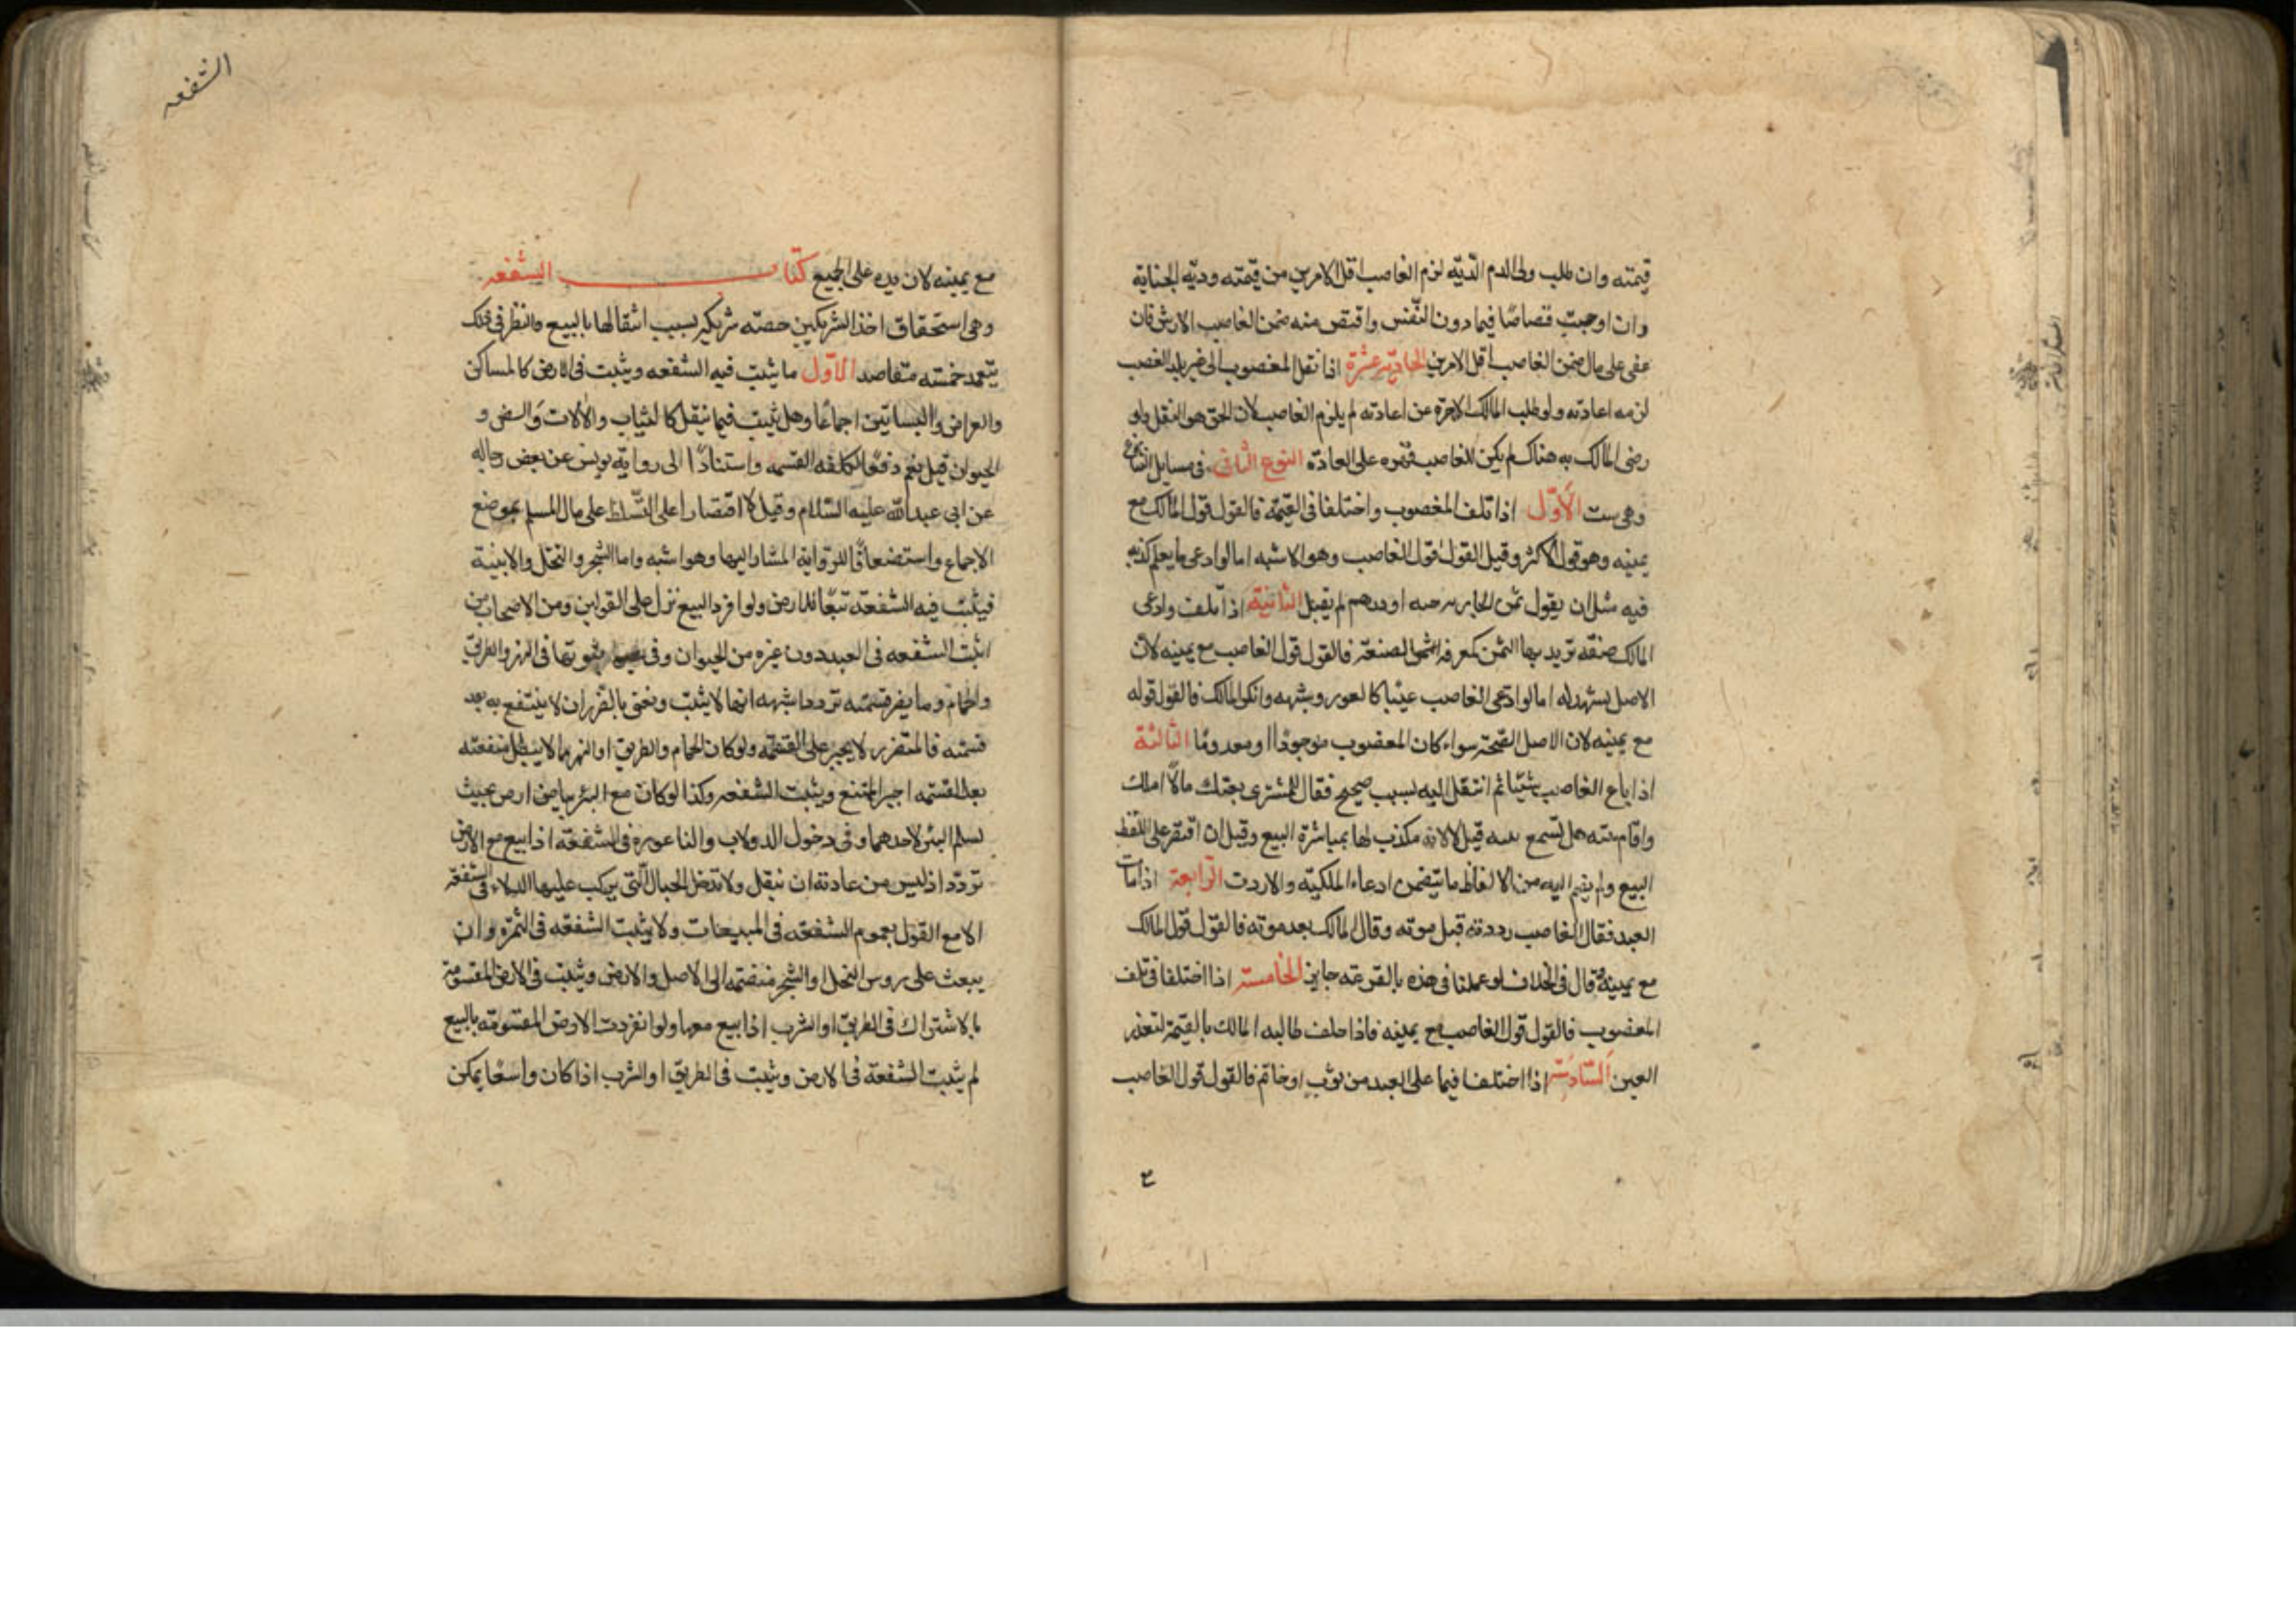 قيمته وان طلب ولى الدم الدّيّه لزم الغاصب اقل الامرين من قيمته وديّه الجنايه
وان اوجبت قصاصًا فيما دون النّفس واقتص منه ضمن الغاصب الارش فان
عفى على مال ضمن الغاصب اقل الامرين الحادية عشرة اذا نقل المغصوب الى غير بلد الغصب
لزمه اعادته ولو طلب المالك الاجرة عن اعادته لم يلزم الغاصب لان الحق هو النقل ولو
رضى المالك به هناك لم يكن للغاصب قهره على العادّه النوع الثانى فى مسايل التنازع
وهى ست الأوّل اذا تلف المغصوب واختلفا فى القيمة فالقول قول المالك مع
يمينه وهو قول الاكثر وقيل القول قول الغاصب وهو الاشبه اما لو ادعى ما يعلم كذبه
فيه مثل ان يقول ثمن الجاريه حبه او درهم لم يقبل الثانية اذا تلف وادعى
المالك صنعه تزيد بها الثمن كمعرفة الصنعة فالقول قول الغاصب مع يمينه لان
الاصل يشهد له اما لو ادّعى الغاصب عيبًا كالعور وشبهه وانكر المالك فالقول قوله
مع يمينه لان الاصل الصّحة سواء كان المغصوب موجودًا او معدومًا الثالثة
اذا باع الغاصب شيئا ثم انتقل اليه بسبب صحيح فقال للمشترى بعتك مالا املك
واقام بينه هل تسمع بينته قيل لا لانه مكذب لها بمباشرة البيع وقيل ان اقتصر على اللفظ
البيع ولم يضم اليه من الالفاظ ما يتضمن ادعاء الملكيّه والا ردت الرّابعة اذا مات
العبد فقال الغاصب رددته قبل موته وقال المالك بعد موته فالقول قول المالك
مع يمينه وقال فى الخلاف لو عملنا فى هذه بالقرعه جاز الخامسة اذا اختلفا فى تلف
المغصوب فالقول قول الغاصب مع يمينه فاذا حلف طالبه المالك بالقيمة لتعذر
العين السّادسة اذا اختلفا فيما على العبد من ثوب او خاتم فالقول قول الغاصب
الشفعه
مع يمينه لان يده على الجميع كتاب الشفعه
وهى استحقاق احد الشريكين حصّه شريكه بسبب انتقالها بالبيع والنظر فى ذلك
يتعمد خمسه مقاصد الأوّل ما يثبت فيه الشفعه ويثبت فى الارض كالمساكن
والعراض والبساتين اجماعًا وهل يثبت فيما ينقل كالثياب والآلات والسفن و
الحيوان قيل نعم دفعًا لكلفه القسمه واستنادًا الى رواية يونس عن بعض رجاله
عن ابى عبد الله عليه السّلام وقيل لا اقتصارا على التّسلط على مال المسلم بموضع
الاجماع واستضعافًا للرّواية المشار اليها وهو اشبه واما الشجر والنخل والابنية
فيثبت فيه الشفعه تبعًا للارض ولو افرد البيع نزل على القولين ومن الاصحاب من
اثبت الشفعه فى العبد دون غيره من الحيوان وفى ثبوتها فى النهر والطريق
والحمّام وما يضر قسمته تردد اشبهه انها لا يثبت ونعنى بالضّرر ان لا ينتفع به بعد
قسمته فالمتضرر لا يجبر على القسمه ولو كان الحمام والطريق او النهر مما لا يبطل منفعته
بعد القسمه اجبر الممتنع ويثبت الشفعه وكذا لو كان مع البئر بياض ارض بحيث
تسلم البئر لاحدهما وفى دخول الدولاب والناعوره فى الشفعة اذا بيع مع الارض
تردّد اذ ليس من عادته ان ينقل ولا تدخل الحبال الّتى يركب عليها الدلاء فى الشفعه
الا مع القول بعموم الشفعه فى المبيعات ولا يثبت الشفعه فى الثمره وان
بيعت على رؤس النخل والشجر منضمه الى الاصل والارض ويثبت فى الارض المقسومة
بالاشتراك فى الطريق او الشرب اذا بيع معها ولو انفردت الارض المقسومه بالبيع
لم يثبت الشفعة فى الارض ويثبت فى الطريق او الشرب اذا كان واسعًا يمكن